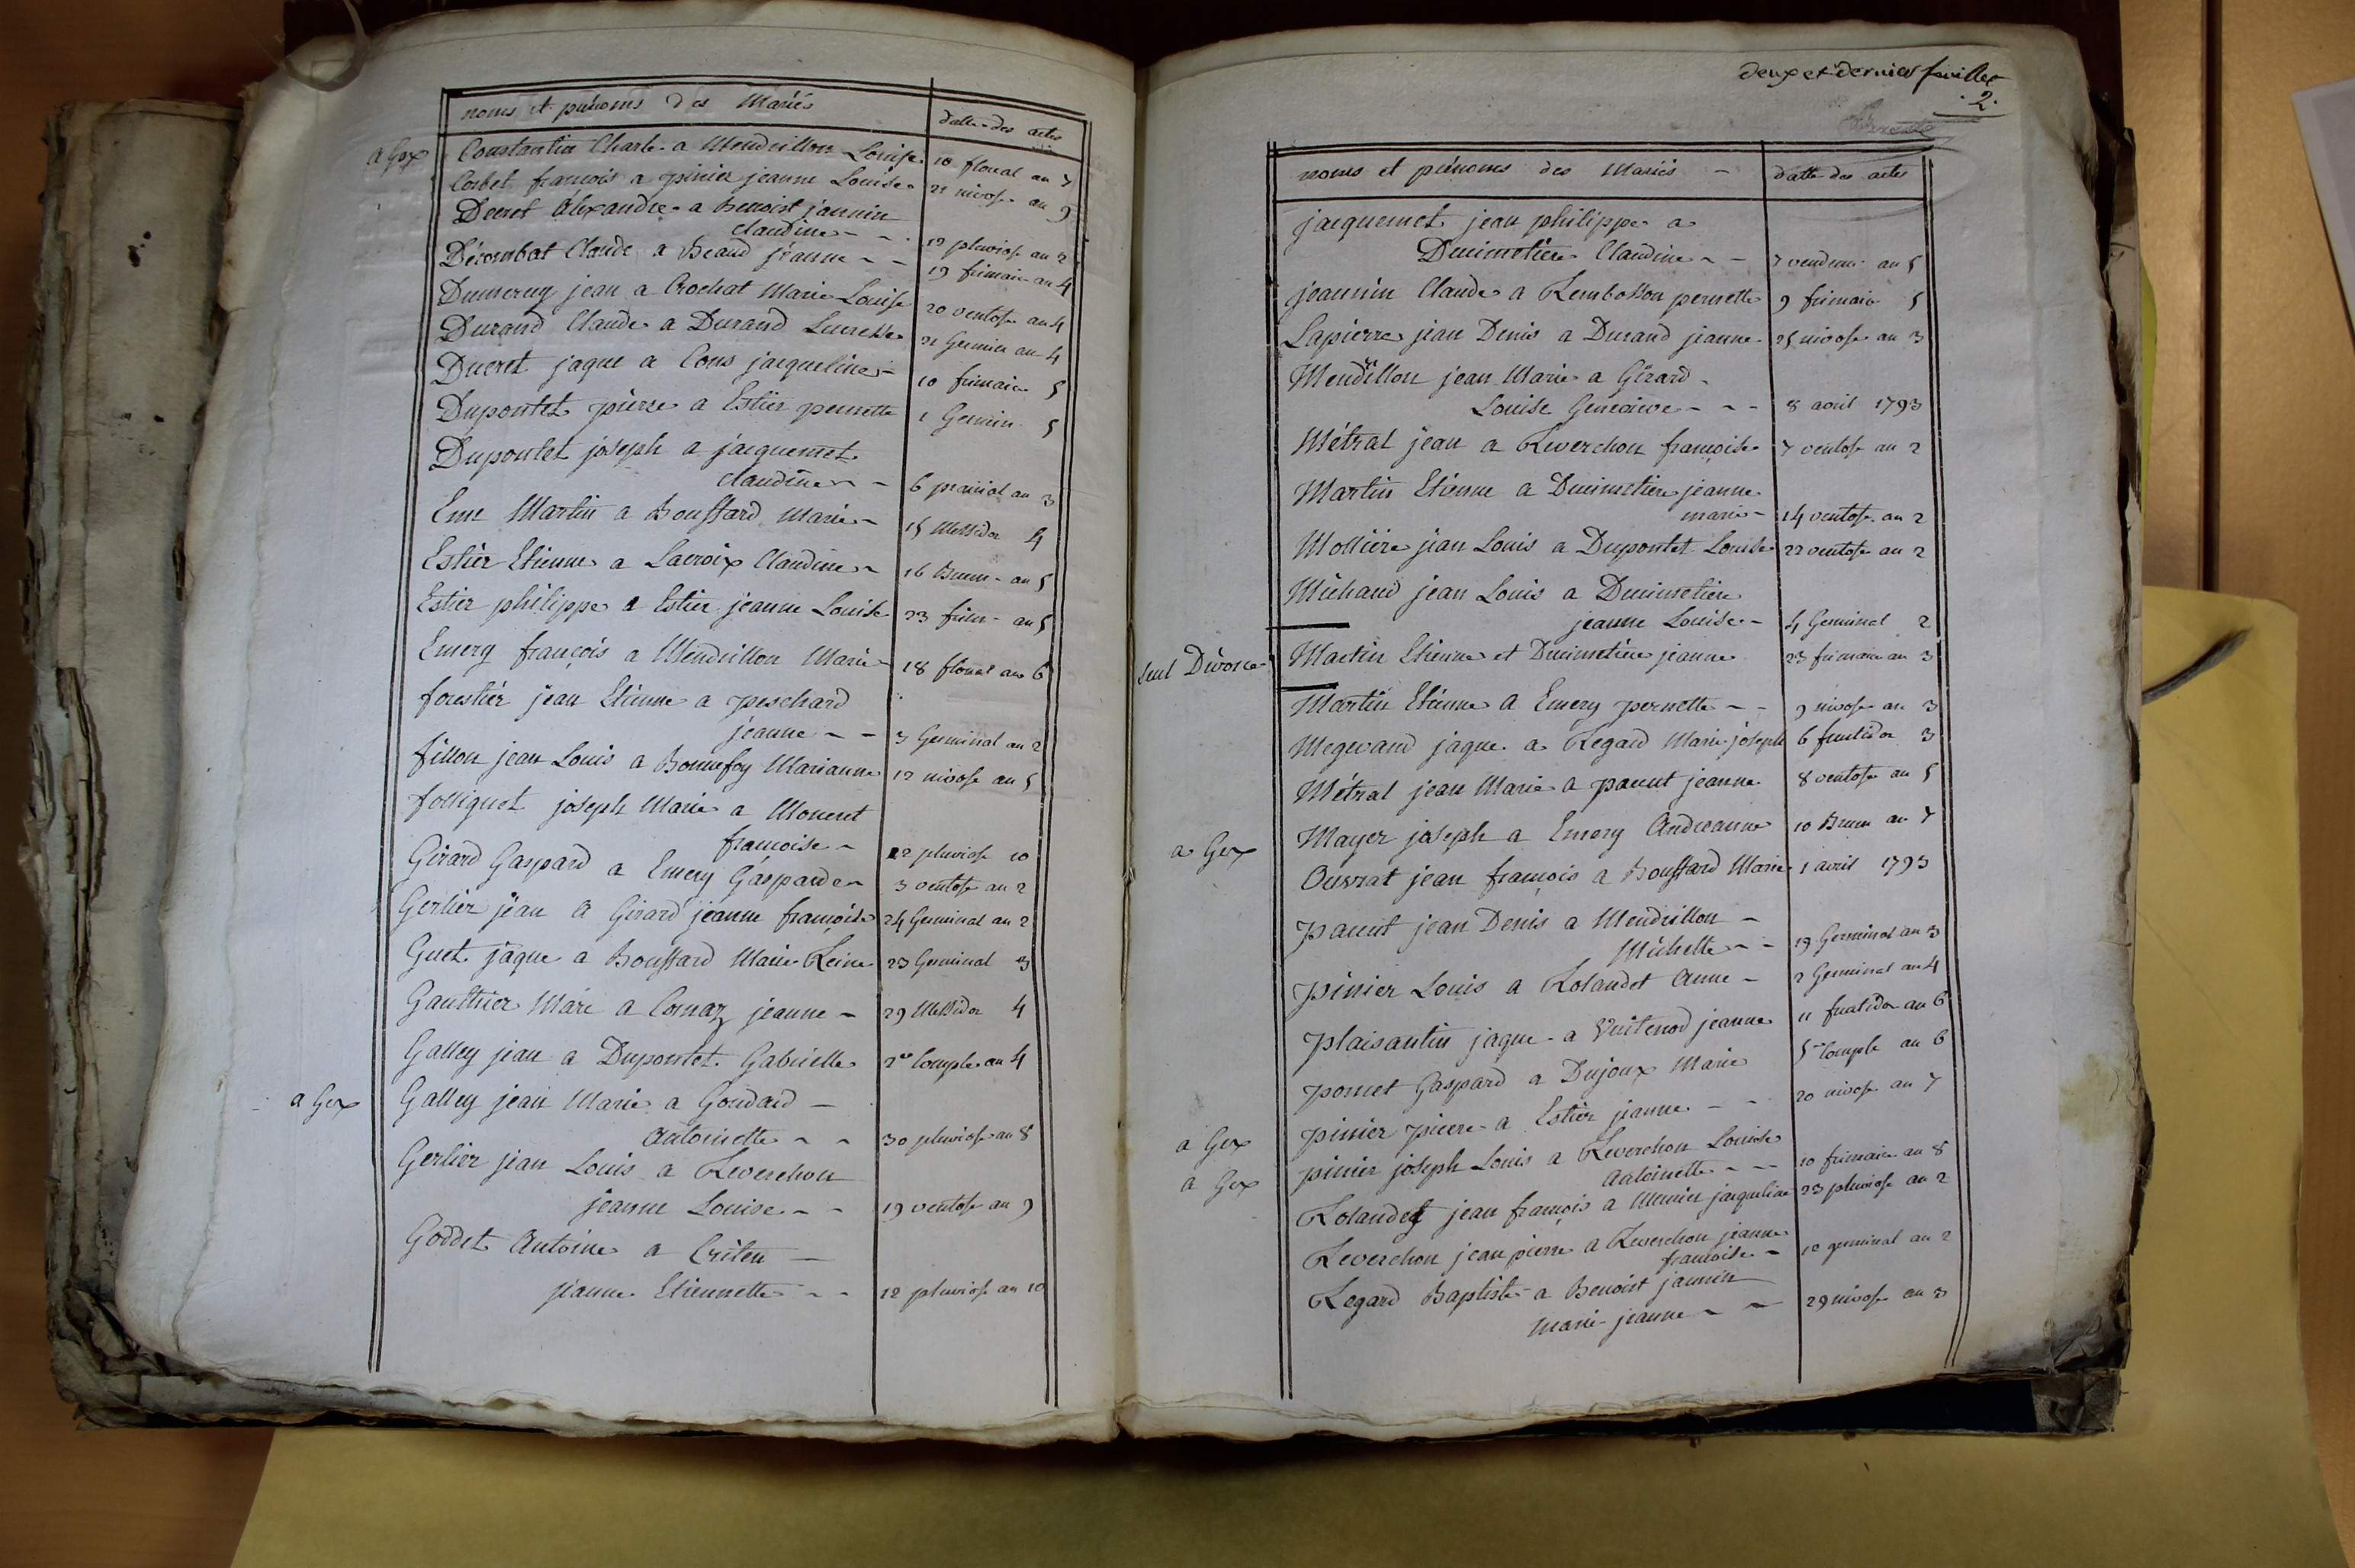 noms et prénoms des Mariés datte des actes
a Gex Constantin Charle a Mendrillon Louise 10 floreal an 7
Corbet francois a pinier jeanne Louise 21 nivose an 9
Decret Alexandre a Benoist jannin
claudine 12 pluviose an 2
Décombat Claude a Beaud jeanne 19 frimaire an 4
Dumerny jean a Crochat Marie Louise 20 ventose an 4
Durand Claude a Durand Lucresse 21 Germin an 4
Ducret jaque a Cons jacqueline 10 frimaire 5
Dupontet pierre a Estier pernette 1 Germin 5
Dupontet joseph a jacquemet
claudine 6 prairial an 3
Eme Martin a Boussard Marie 15 Messidor 4
Estier Etienne a Lacroix Claudine 16 Brum. an 5
Estier philippe a Estier jeanne Louise 23 frim. an 5
Emery françois a Mendrillon Marie 18 floreal an 6
forestier jean Etienne a peschard
jeanne 3 Germinal an 2
fillon jean Louis a Bonnefoy Marianne 12 nivose an 5
folliguet joseph Marie a Monent
francoise 22 pluviose 10
Girard Gaspard a Emery Gasparde 3 ventose an 2
Gerlier jean a Girard jeanne françoise 24 Germinal an 2
Guet jaque a Boussard Marie Reine 23 Germinal 3
Gauthier Marc a Cornaz jeanne 29 Messidor 4
Galley jean a Dupontet Gabrielle 2e comple. an 4
a Gex Galley jean Marie a Goudard
Antoinette 30 pluviose an 8
Gerlier jean Louis a Reverchon
jeanne Louise 19 ventose an 9
Goddet Antoine a Criten
jeanne Etiennette 12 pluviose an 10
deux et dernier feuillet
2.
noms et prénoms des Mariés datte des actes
jacquemet jean philippe a
Dunimetiere Claudine 7 vendem. an 5
jeannin Claude a Rembosson pernette 9 frimaire 5
Lapierre jean Denis a Durand jeanne 25 nivose an 3
Mendrillon jean Marie a Girard
Louise Genevieve 8 avril 1793
Métral jean a Reverchon françoise 7 ventose an 2
Martin Etienne a Dunimetiere jeanne
marie 14 ventose an 2
Mollière jean Louis a Dupontet Louise 22 ventose an 2
Michaud jean Louis a Dunimetiere
jeanne Louise 4 Germinal 2
Seul Divorce Martin Etienne et Dunimetiere jeanne 23 frimaire an 3
Martin Etienne a Emery pernette 9 nivose an 3
Megevand jaque a Regard Marie joseph 6 fructidor 3
Métral jean Marie a panut jeanne 8 ventose an 5
a Gex Mayer joseph a Emery Andreanne 10 Brum an 7
Ouvrat jean françois a Boussard Marie 1 avril 1793
panut jean Denis a Mendrillon
Michelle 19 Germinal an 3
pinier Louis a Rolandet Anne 2 Germinal an 4
plaisantin jaque a Vuitenod jeanne 11 fructidor an 6
pomet Gaspard a Dujoux Marie 5e comple an 6
a Gex pinier pierre a Estier jeanne 20 nivose an 7
a Gex pinier joseph Louis a Reverchon Louise
Antoinette 10 frimaire an 8
Rolandet jean françois a Munier jacqueline 23 pluviose an 2
Reverchon jean pierre a Reverchon jeanne
francoise 12 germinal an 2
Regard Baptiste a Benoist jannin
marie jeanne 29 nivose an 3